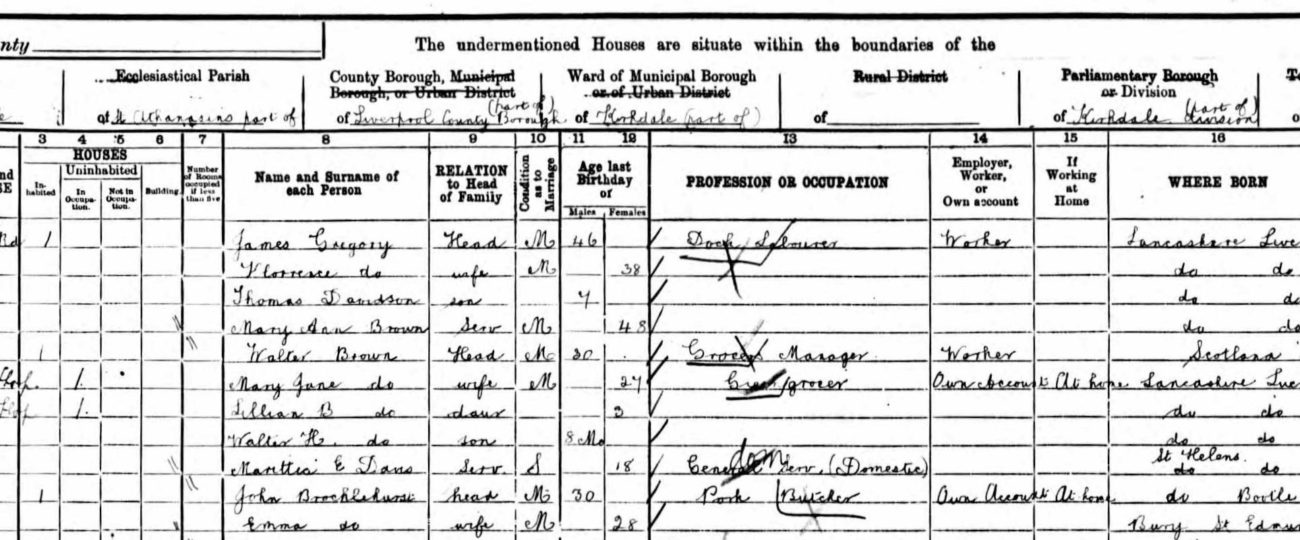 nty
The undermentioned Houses are situate within the boundaries of the
Ecclesiastical Parish
County Borough, Municipal Borough, or Urban District
Ward of Municipal Borough or of Urban District
Rural District
Parliamentary Borough or Division
of St Athanasius part of
of Liverpool County Borough (part of)
of Kirkdale (part of)
of
of Kirkdale division (part of)
3 4 5 6 7 8 9 10 11 12 13 14 15 16
HOUSES
Inhabited
Uninhabited
In Occupation.
Not in Occupation.
Building.
Number of Rooms occupied if less than five
Name and Surname of each Person
RELATION to Head of Family
Condition as to Marriage
Age last Birthday of
Males Females
PROFESSION OR OCCUPATION
Employer, Worker, or Own account
If Working at Home
WHERE BORN
1 James Gregory Head M 46 Dock Labourer Worker Lancashire Live
Florrence do wife M 38 do do
Thomas Davidson son 7 do do
Mary Ann Brown Serv M 48 do do
1 Walter Brown Head M 30 Grocers Manager Worker Scotland
1 Mary Jane do wife M 27 Greengrocer Own Account At home Lancashire Live
1 Lillian B do daur 3 do do
Walter H. do son 8 Mo do do
E Davis Serv. S 18 General Serv. (Domestic) St Helens do do
1 John Brocklehurst head M 30 Pork Butcher Own Account At home do Bootle
Emma do wife M 28 Bury St Edmu